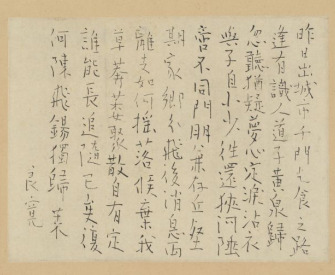 昨日出城市千門乞食之路
逢有識人道子黄泉歸
忽聽猶疑夢心定淚沾衣
與子自小少往還狹河陲
啻不同門朋兼
期家鄉分飛後消息両
離支如何搖落候棄我
草莽去聚散自有定
誰能長追隨已矣復
何陳飛錫獨歸来
良寛